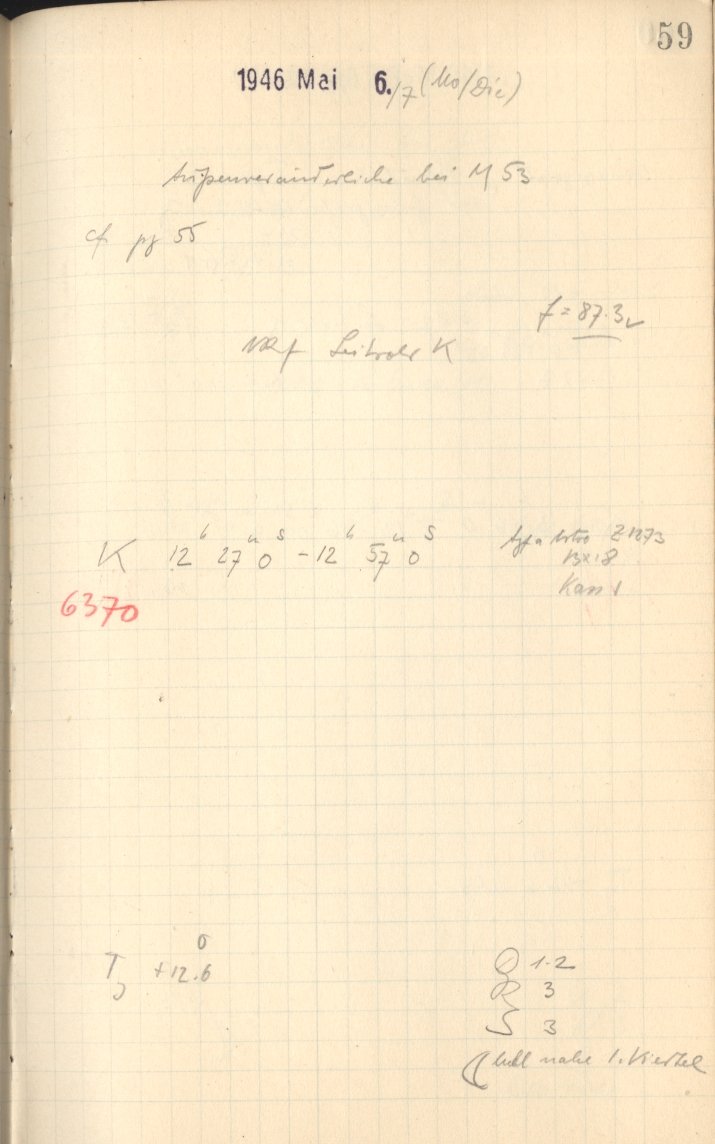 59
1946 Mai 6./7 (Mo/Die)
Außenveränderliche bei M 53
cf pg 55
f = 87.3
K
K 12h 27m 0s - 12h 57m 0s
Agfa Astro Z 1273
13x18
Kass 1
6370
T +12.6°
Q 1-2
R 3
S 3
hell nahe 1. Viertel